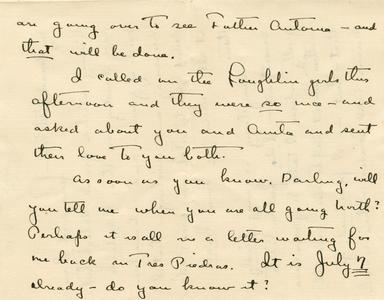 are going over to see Father Antonio – and
that will be done.
I called on the Loughlin girls this
afternoon and they were so nice – and
asked about you and Anita and sent
their love to you both.
As soon as you know, Darling, will
you tell me when you are all going North?
Perhaps it is all in a letter waiting for
me back in Tres Piedras. It is July 7
already – do you know it?